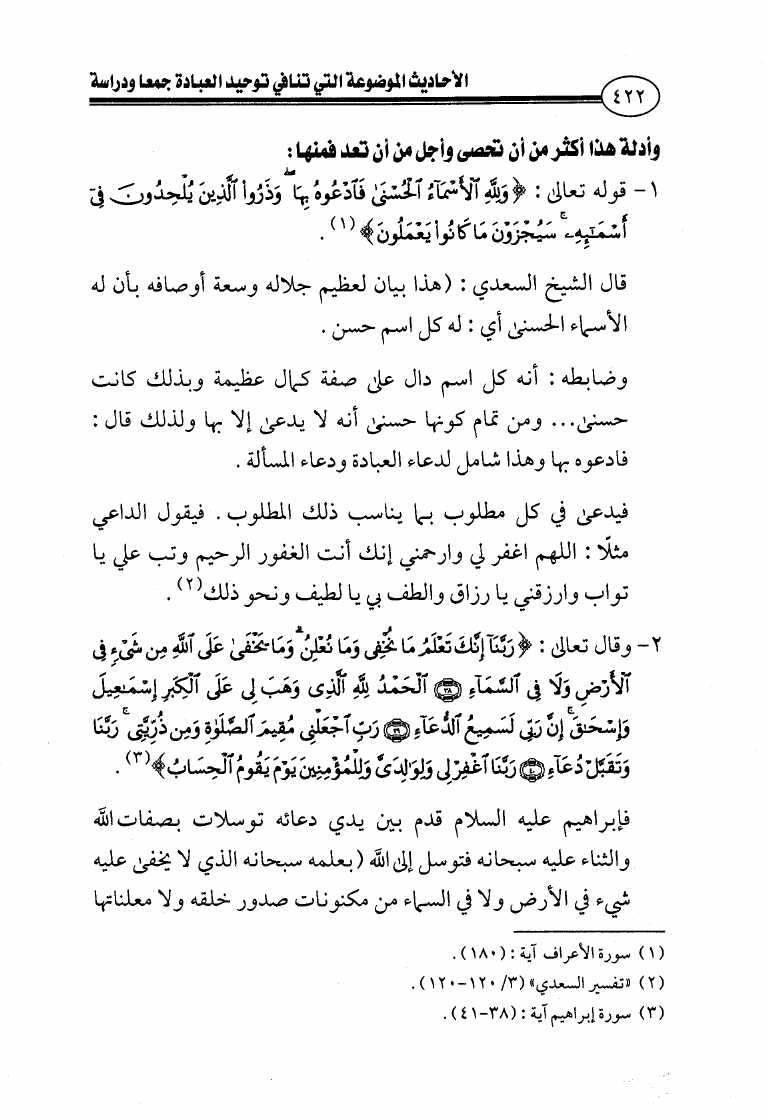 الأحاديث الموضوعة التي تنافي توحيد العبادة جمعا ودراسة
٤٢٢
وأدلة هذا أكثر من أن تحصى وأجل من أن تعد فمنها:
١- قوله تعالى: ﴿وَلِلَّهِ ٱلْأَسْمَآءُ ٱلْحُسْنَىٰ فَٱدْعُوهُ بِهَا ۖ وَذَرُوا۟ ٱلَّذِينَ يُلْحِدُونَ فِىٓ
أَسْمَـٰٓئِهِۦ ۚ سَيُجْزَوْنَ مَا كَانُوا۟ يَعْمَلُونَ﴾(١).
قال الشيخ السعدي: (هذا بيان لعظيم جلاله وسعة أوصافه بأن له
الأسماء الحسنى أي: له كل اسم حسن.
وضابطه: أنه كل اسم دال على صفة كمال عظيمة وبذلك كانت
حسنى... ومن تمام كونها حسنى أنه لا يدعى إلا بها ولذلك قال:
فادعوه بها وهذا شامل لدعاء العبادة ودعاء المسألة.
فيدعى في كل مطلوب بما يناسب ذلك المطلوب. فيقول الداعي
مثلًا: اللهم اغفر لي وارحمني إنك أنت الغفور الرحيم وتب علي يا
تواب وارزقني يا رزاق والطف بي يا لطيف ونحو ذلك(٢).
٢- وقال تعالى: ﴿رَبَّنَآ إِنَّكَ تَعْلَمُ مَا نُخْفِى وَمَا نُعْلِنُ ۗ وَمَا يَخْفَىٰ عَلَى ٱللَّهِ مِن شَىْءٍ فِى
ٱلْأَرْضِ وَلَا فِى ٱلسَّمَآءِ ۝٣٨ ٱلْحَمْدُ لِلَّهِ ٱلَّذِى وَهَبَ لِى عَلَى ٱلْكِبَرِ إِسْمَـٰعِيلَ
وَإِسْحَـٰقَ ۚ إِنَّ رَبِّى لَسَمِيعُ ٱلدُّعَآءِ ۝٣٩ رَبِّ ٱجْعَلْنِى مُقِيمَ ٱلصَّلَوٰةِ وَمِن ذُرِّيَّتِى ۚ رَبَّنَا
وَتَقَبَّلْ دُعَآءِ ۝٤٠ رَبَّنَا ٱغْفِرْ لِى وَلِوَٰلِدَىَّ وَلِلْمُؤْمِنِينَ يَوْمَ يَقُومُ ٱلْحِسَابُ﴾(٣).
فإبراهيم عليه السلام قدم بين يدي دعائه توسلات بصفات الله
والثناء عليه سبحانه فتوسل إلى الله (بعلمه سبحانه الذي لا يخفى عليه
شيء في الأرض ولا في السماء من مكنونات صدور خلقه ولا معلناتها
(١) سورة الأعراف آية: (١٨٠).
(٢) «تفسير السعدي» (٣/ ١٢٠-١٢٠).
(٣) سورة إبراهيم آية: (٣٨-٤١).